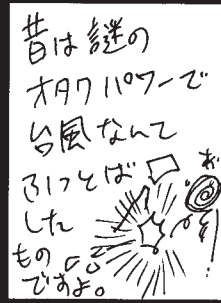 昔は謎の
オタクパワーで
台風なんて
ふっとば
した
もの
ですよ。